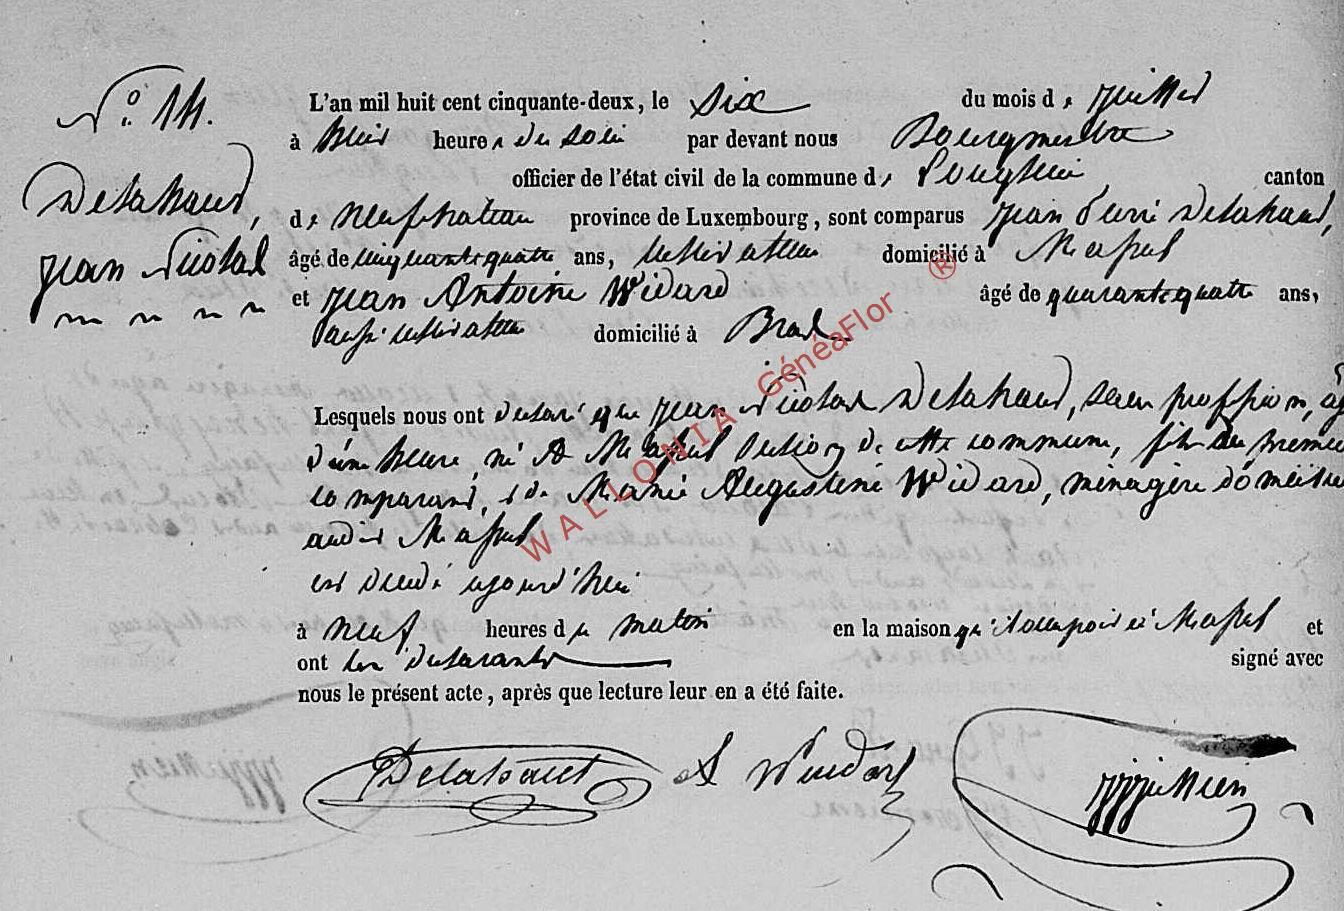 N.° 14.
L'an mil huit cent cinquante-deux, le six du mois de juillet
à huit heures du soir par devant nous Bourgmestre
officier de l'état civil de la commune de Longlier canton
Delahaut,
de neufchateau province de Luxembourg, sont comparus jean Pierre Delahaut,
jean Nicolas
âgé de cinquante quatre ans, cultivateur domicilié à Massul
et jean Antoine Widard âgé de quarante quatre ans,
aussi cultivateur domicilié à
Lesquels nous ont declaré que jean Nicolas Delahaut, sans profession,
d'une heure né à Massul section de cette commune, fils du premier
comparant, et de Marie Augustine Widard, ménagère
audit Massul
est décédé aujourd'hui
à neuf heures du matin en la maison qu'il occupoit à Massul et
ont les déclarants signé avec
nous le présent acte, après que lecture leur en a été faite.
Delahaut A Windart
WALLONIA GénéaFlor ®